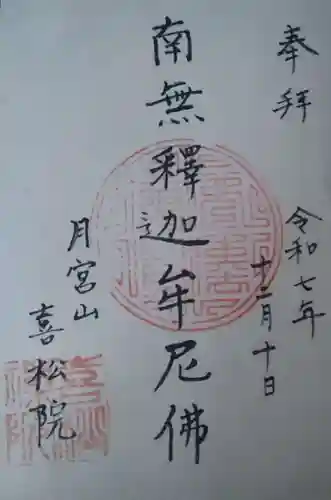 奉拝
令和七年
十二月十日
南無釋迦牟尼佛
月宮山
喜松院